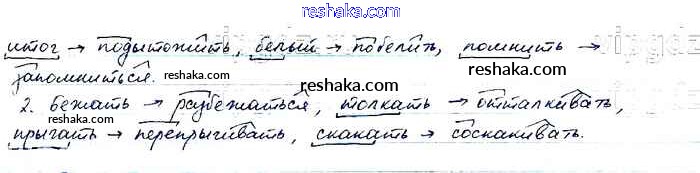 reshaka.com
итог → подытожить, белый → побелить, помнить →
запомниться. reshaka.com reshaka.com
2. бежать → разбежаться, толкать → отталкивать,
reshaka.com reshaka.com
прыгать → перепрыгивать, скакать → соскакивать.